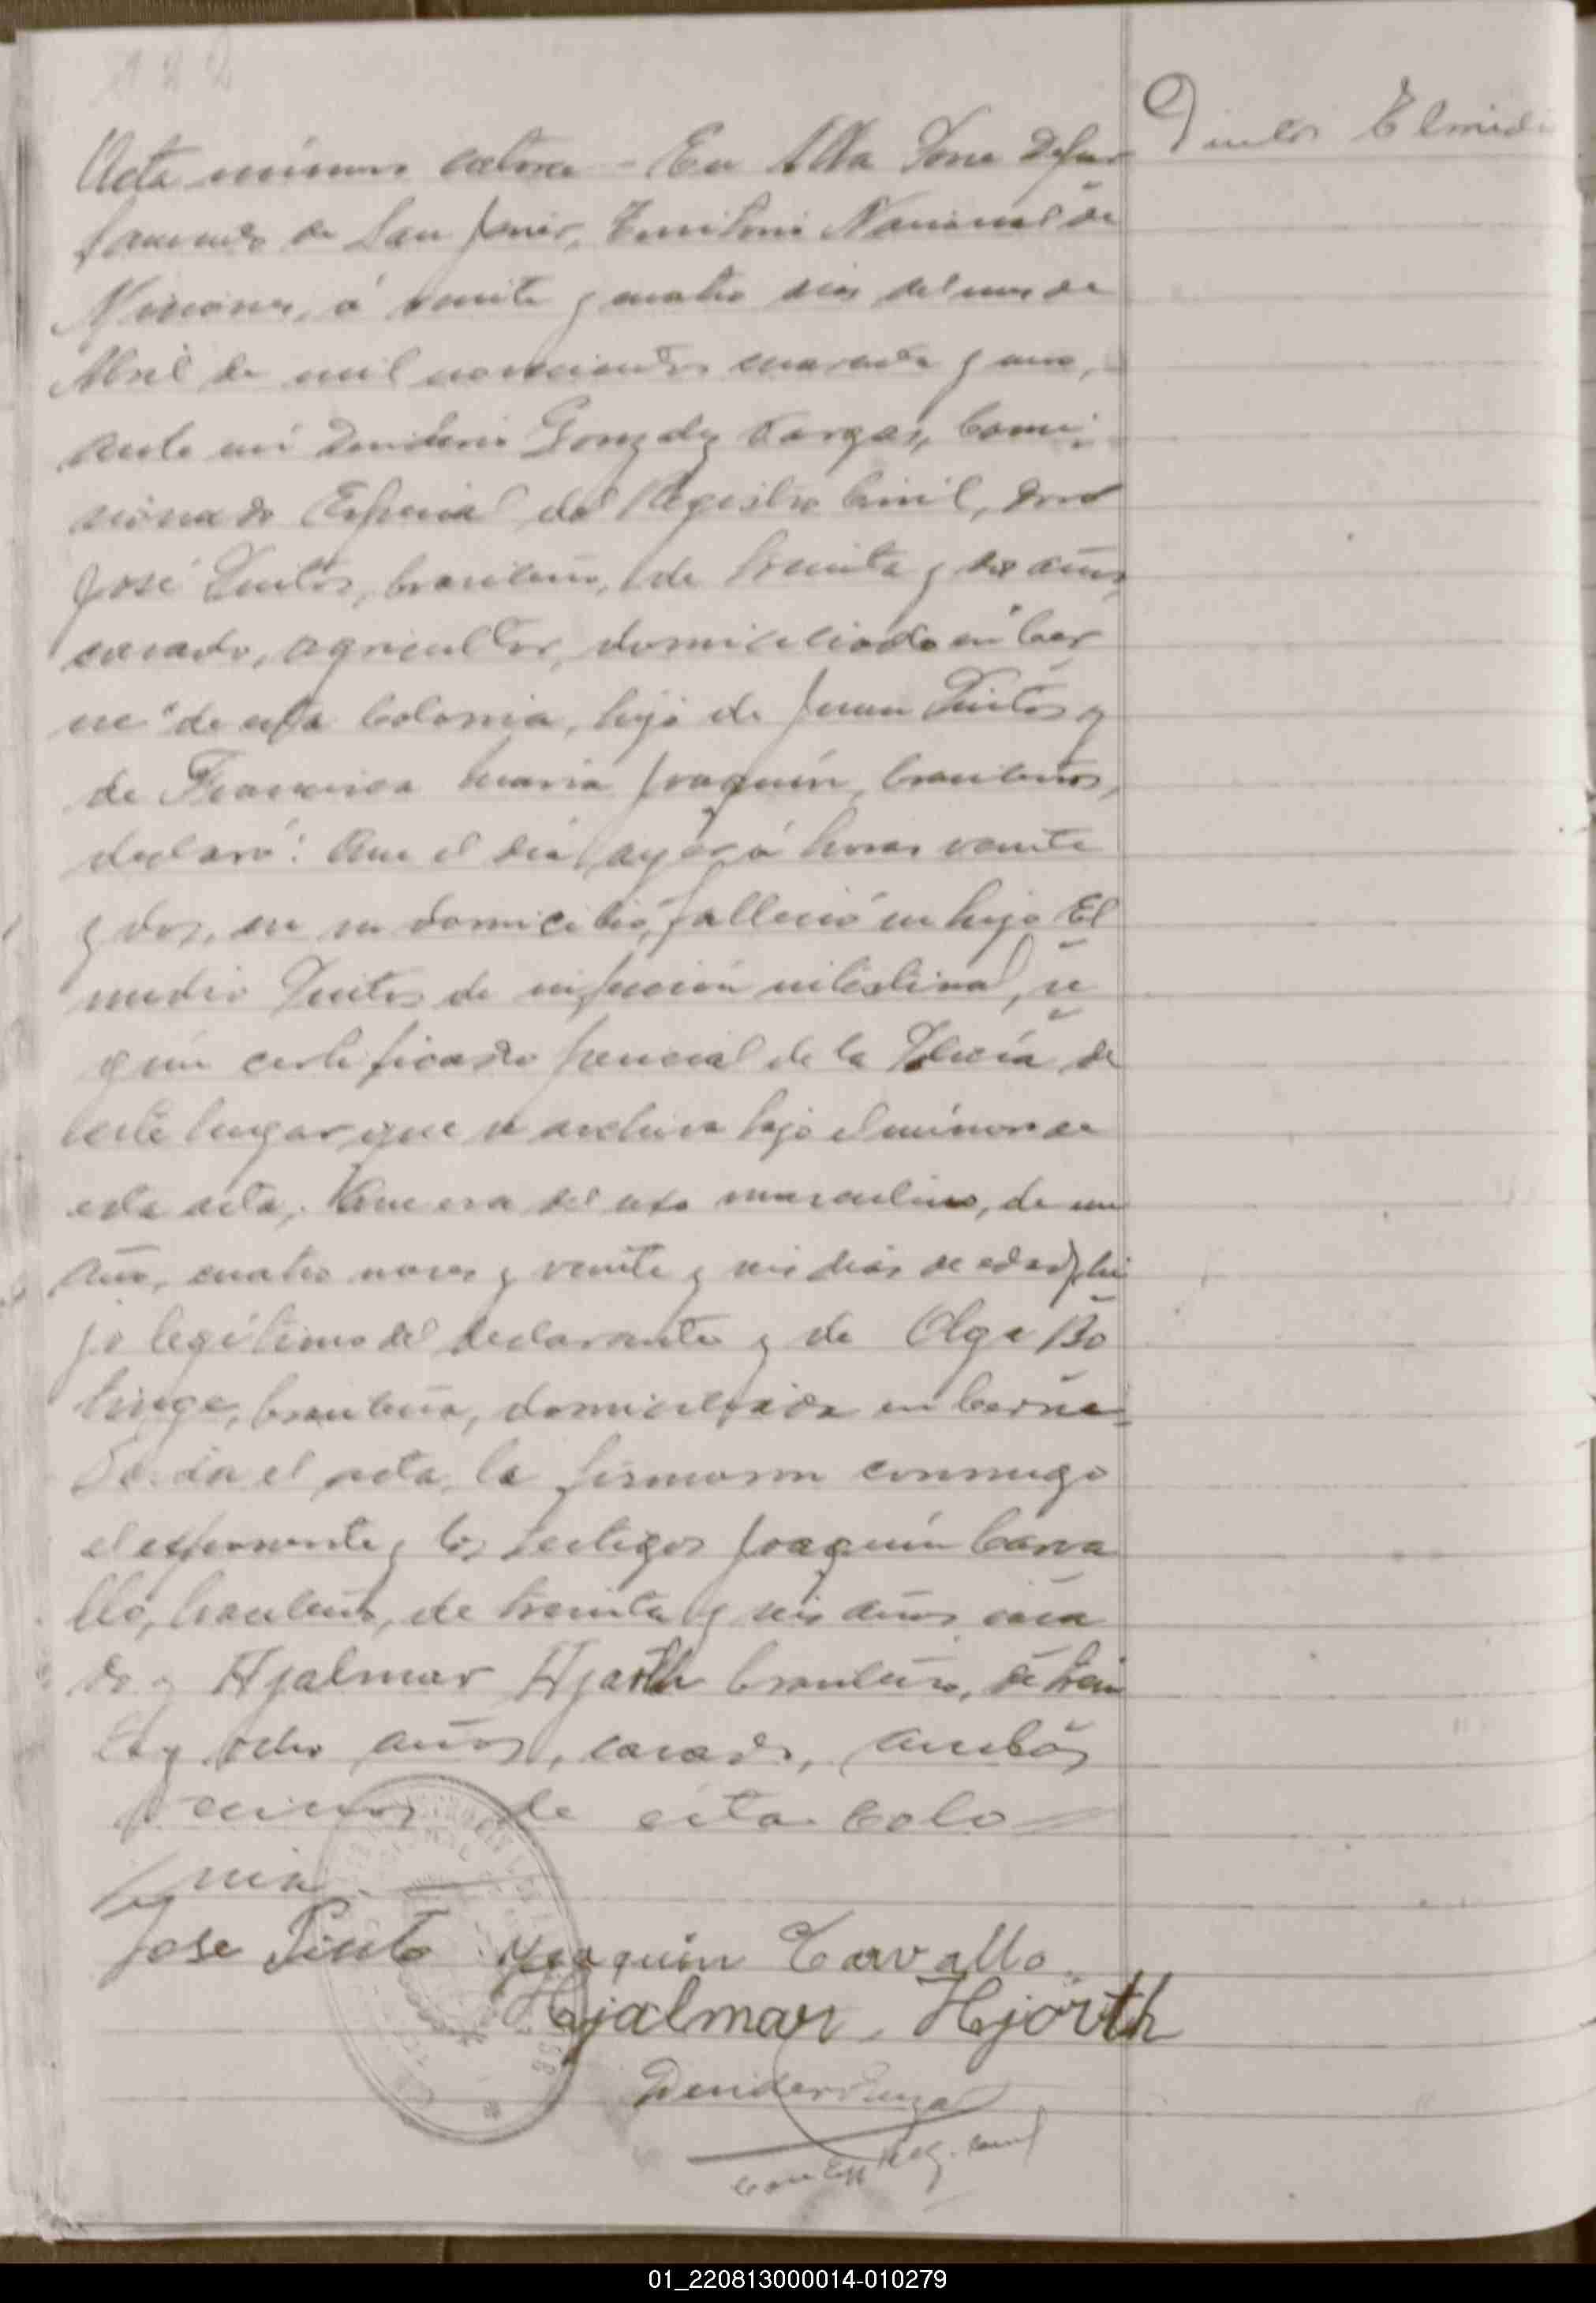 Pintos Elmidio
Acta número catorce - En Alba Posse Depar
tamento de San Javier, Territorio Nacional de
Misiones, á veinte y cuatro días del mes de
Abril de mil novecientos cuarenta y uno,
ante mí Desiderio González Vargas, Comi
sionado Especial del Registro Civil, don
José Pintos, brasileño, de treinta y seis años,
casado, agricultor, domiciliado en "Cer
ne" de esta Colonia, hijo de Juan Pintos y
de Francisca María Joaquín, brasileños,
declaró: Que el día ayer á horas veinte
y dos, en su domicilio, falleció su hijo El
midio Pintos de infección intestinal, se
gún certificado pericial de la Policía de
este lugar que se archiva bajo el número de
esta acta. Que era del sexo masculino, de un
año, cuatro meses y veinte y seis días de edad, hi
jo legítimo del declarante y de Olga Bo
brasileña, domiciliada en Cerne
Leída el acta, la firmaron conmigo
el exponente y los testigos Joaquín Carva
llo, brasileño, de treinta y seis años, casa
do y Hjalmar Hjorth brasileño, de trein
ta y ocho años, casado, ambos
vecinos de esta Colo
nia.
Jose Pinto Joaquin Carvallo
Hjalmar Hjorth
Com Esp Reg. Civil
01_220813000014-010279